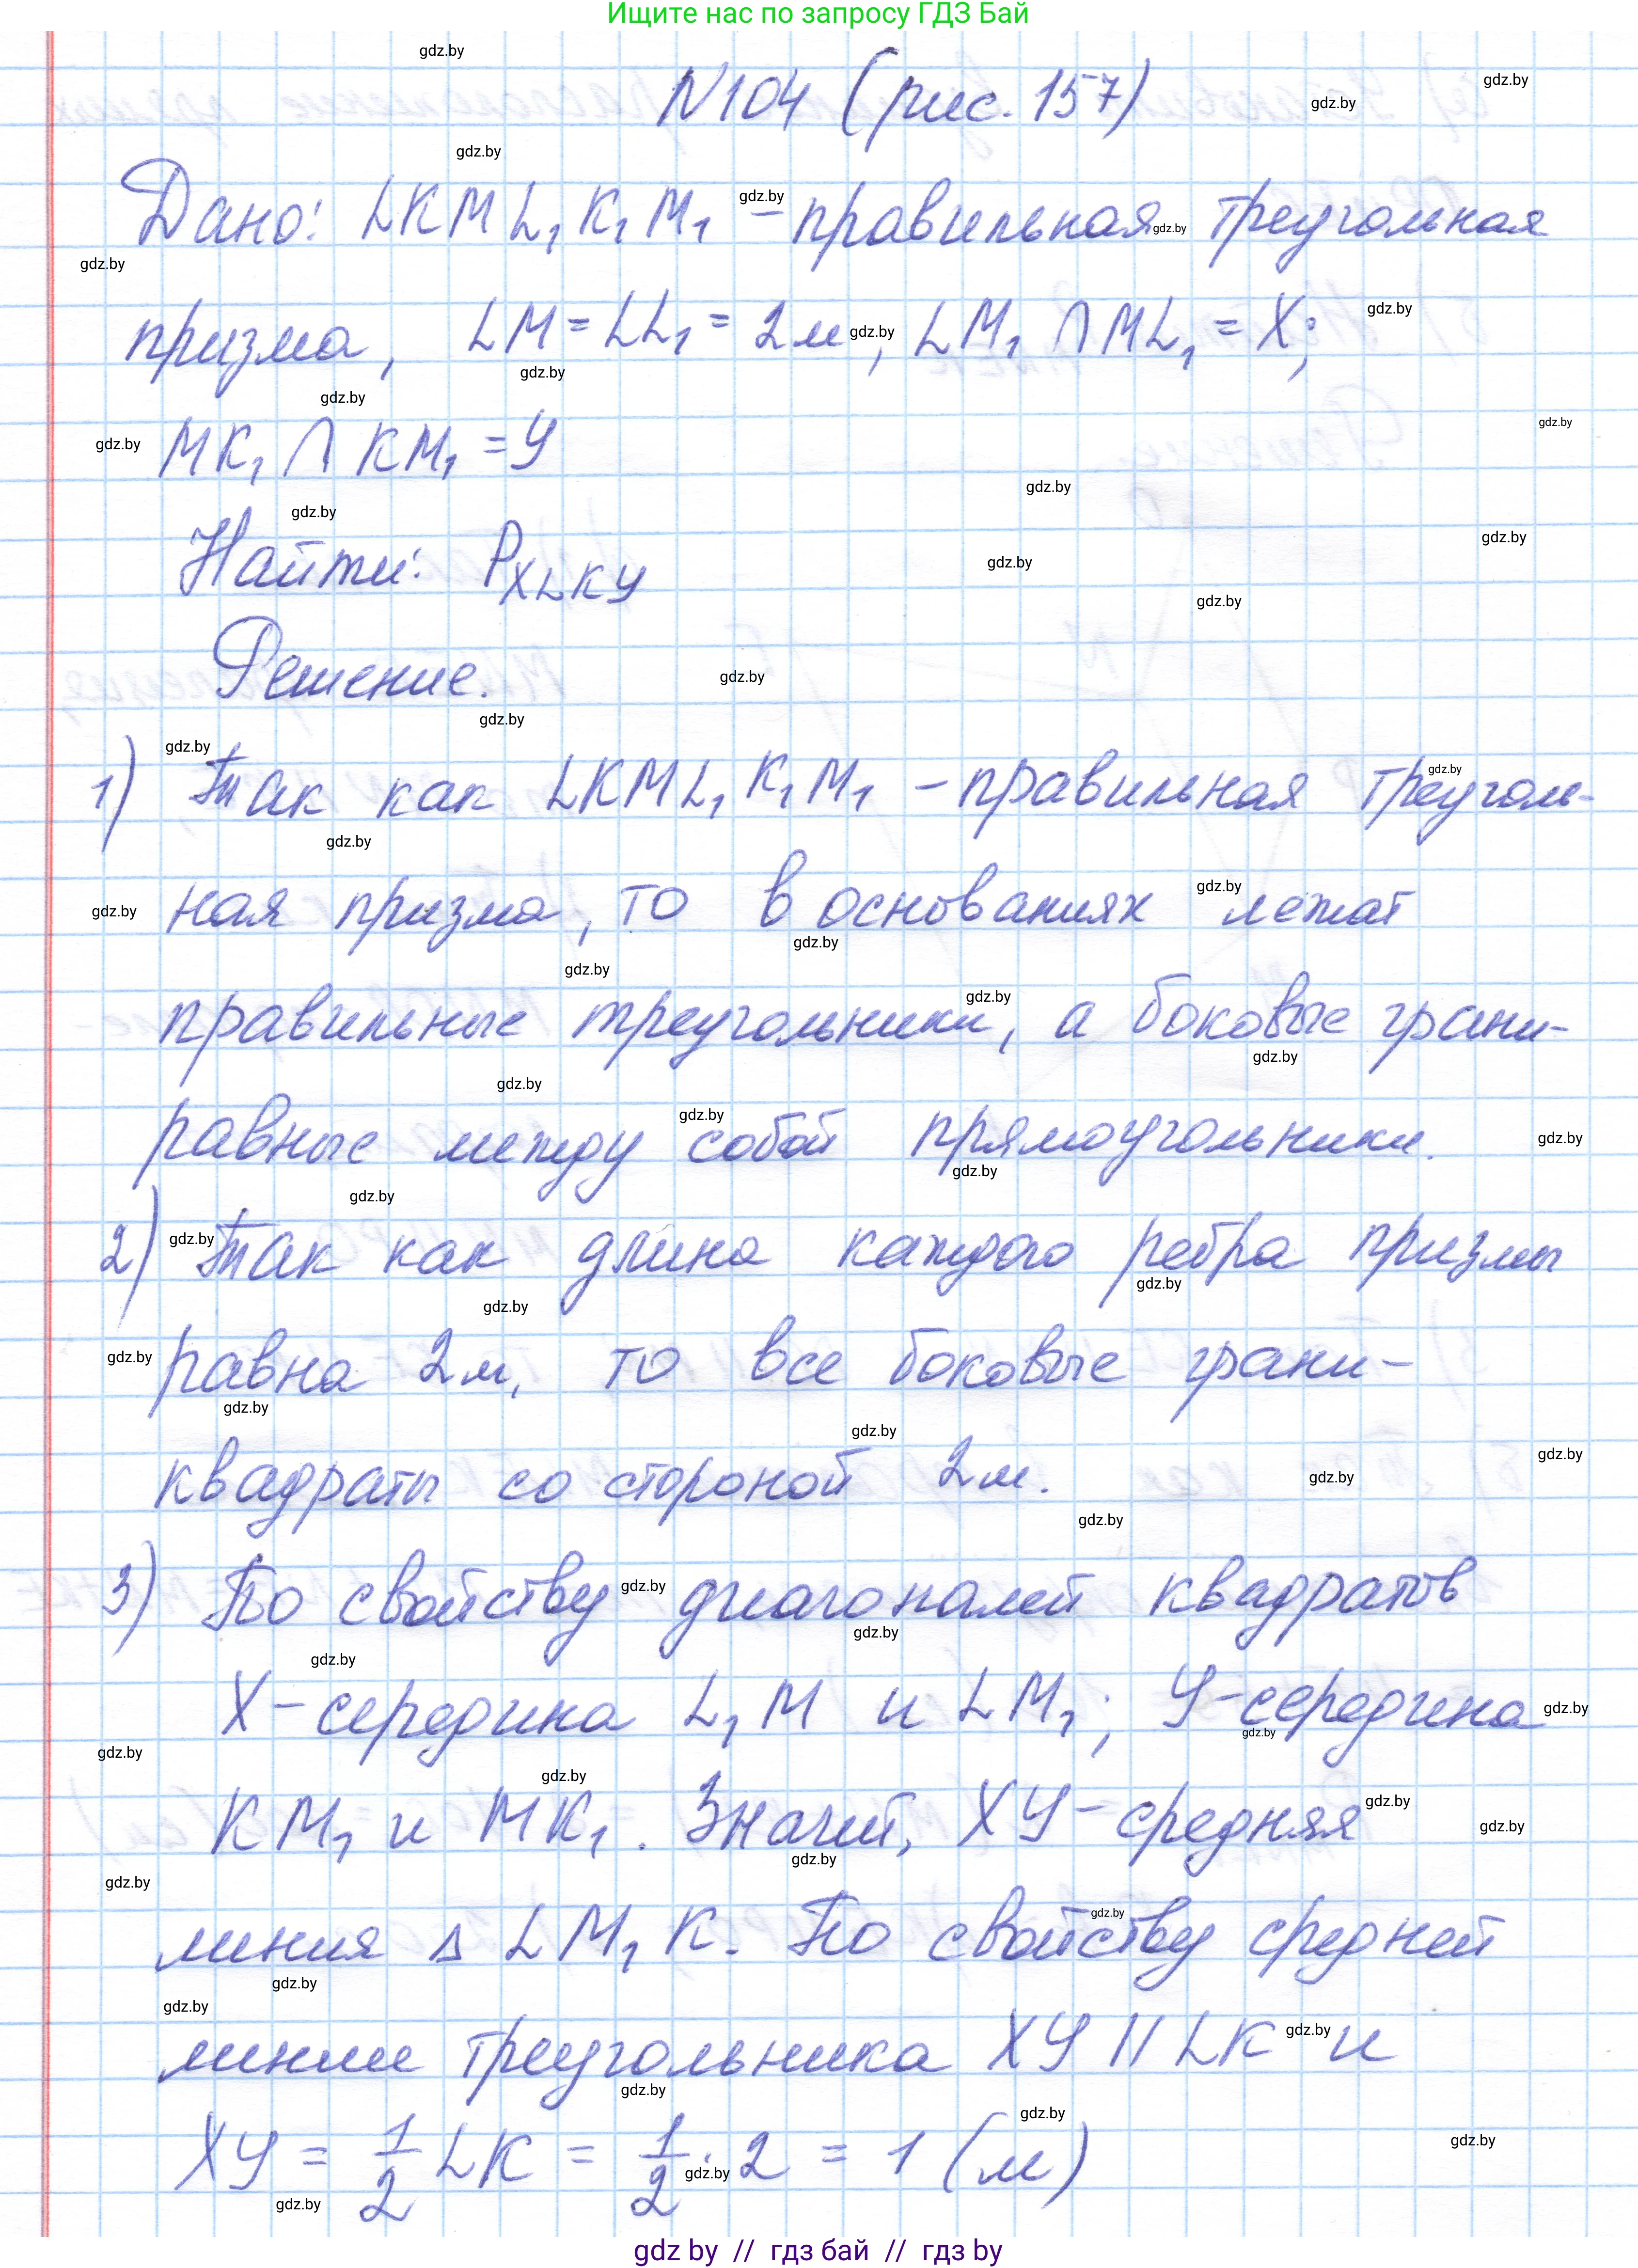 Ищите нас по запросу ГДЗ Бай
N104 (рис. 157)
Дано: LKML₁K₁M₁ – правильная треугольная
призма, LM = LL₁ = 2м, LM₁ ∩ ML₁ = X;
MK₁ ∩ KM₁ = У
Найти: P_XLKУ
Решение.
1) Так как LKML₁K₁M₁ – правильная треуголь-
ная призма, то в основаниях лежат
правильные треугольники, а боковые грани-
равные между собой прямоугольники.
2) Так как длина каждого ребра призмы
равна 2м, то все боковые грани-
квадраты со стороной 2м.
3) По свойству диагоналей квадратов
X – середина L₁M и LM₁; У – середина
KM₁ и MK₁. Значит, XУ – средняя
линия Δ LM₁K. По свойству средней
линии треугольника XУ || LK и
XУ = 1/2 LK = 1/2 · 2 = 1 (м)
gdz by // гдз бай // гдз by